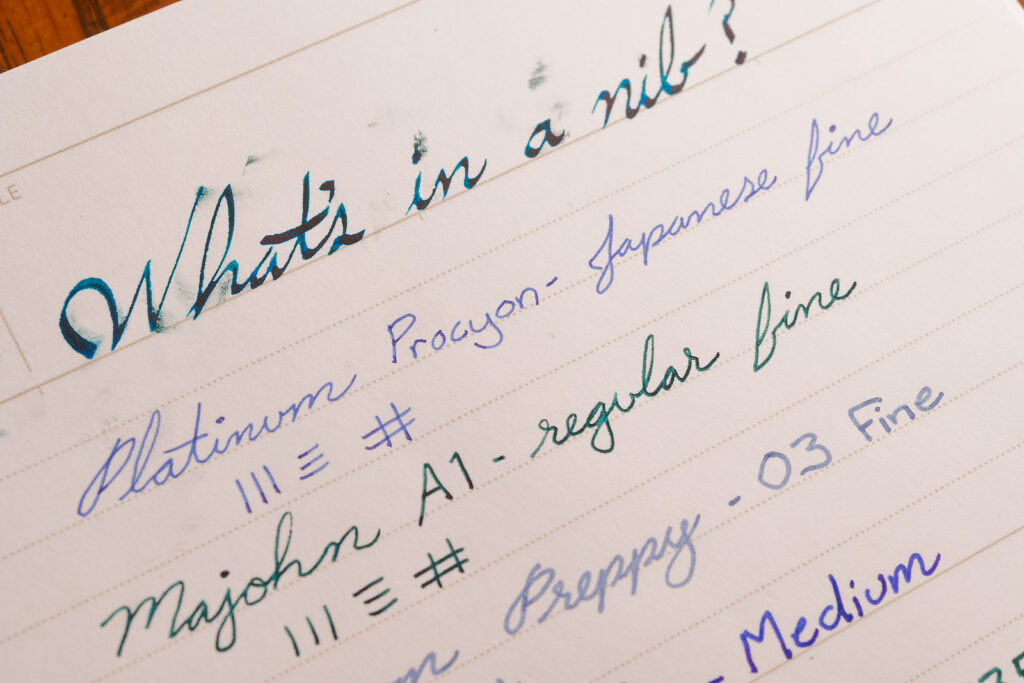 LE
What's in a nib?
Platinum Procyon- Japanese fine
||| ≡ #
Majohn A1 - regular fine
||| ≡ #
Preppy - 03 Fine
- Medium